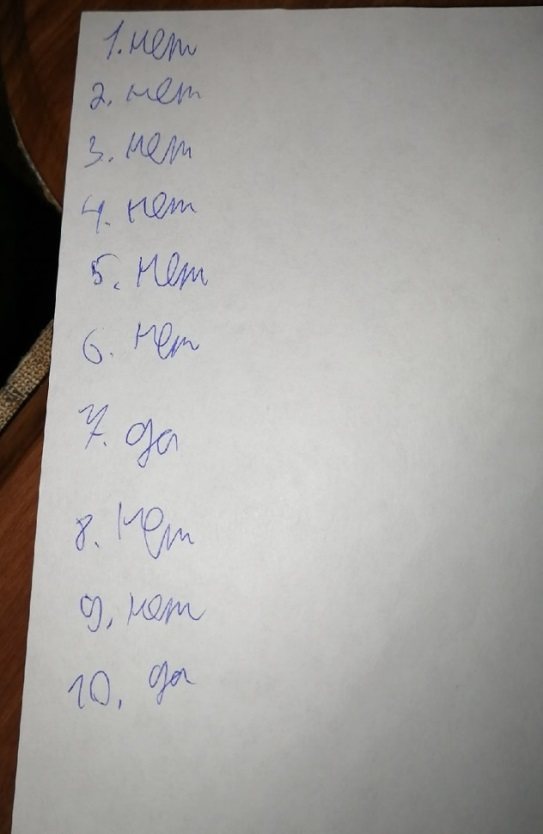 1. нет
2. нет
3. нет
4. нет
5. нет
6. нет
7. да
8. нет
9. нет
10. да